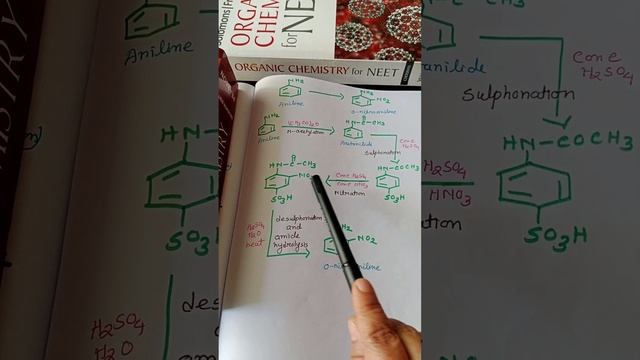 Solomons | Fr
ORGANIC
CHEM
for
NEET
ORGANIC CHEMISTRY for NEET
NH2
NH2
NO2
Aniline
O-nitroaniline
NH2
(CH3CO)2O
N-acetylation
HN-C-CH3
O
Aniline
Acetanilide
Sulphonation
Conc
H2SO4
HN-C-CH3
O
NO
SO3H
Conc H2SO4
Conc HNO3
Nitration
HN-COCH3
SO3H
H2SO4
H2O
heat
desulphonation
and
amide
hydrolysis
H2
NO2
Aniline
anilide
Conc
H2SO4
Sulphonation
HN-COCH3
SO3H
H2SO4
HNO3
HN-
SO3H
H2SO4
H2O
des